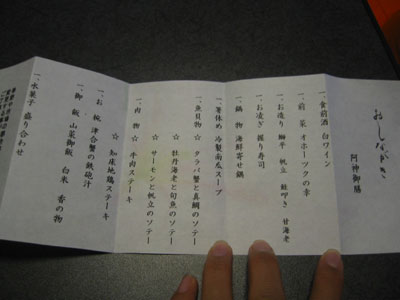 おしながき
阿神御膳
一、食前酒 白ワイン
一、前菜 オホーツクの幸
一、お造り 鰤平 帆立 鮭叩き 甘海老
一、お凌ぎ 握り寿司
一、鍋物 海鮮寄せ鍋
一、箸休め 冷製南瓜スープ
一、魚貝物 ☆ タラバ蟹と真鯛のソテー
☆ 牡丹海老と旬魚のソテー
☆ サーモンと帆立のソテー
一、肉物 ☆ 牛肉ステーキ
☆ 知床地鶏ステーキ
一、お椀 津合蟹の鉄砲汁
一、御飯 山菜御飯 白米 香の物
一、水菓子 盛り合わせ